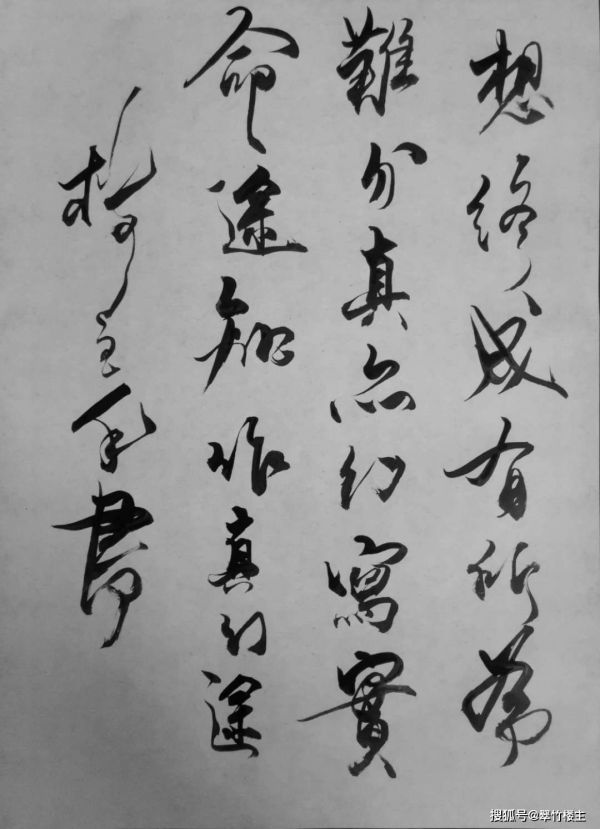 想終成有所
難分真亦幻寫實
命途知作真幻途
書
搜狐号@翠竹楼主